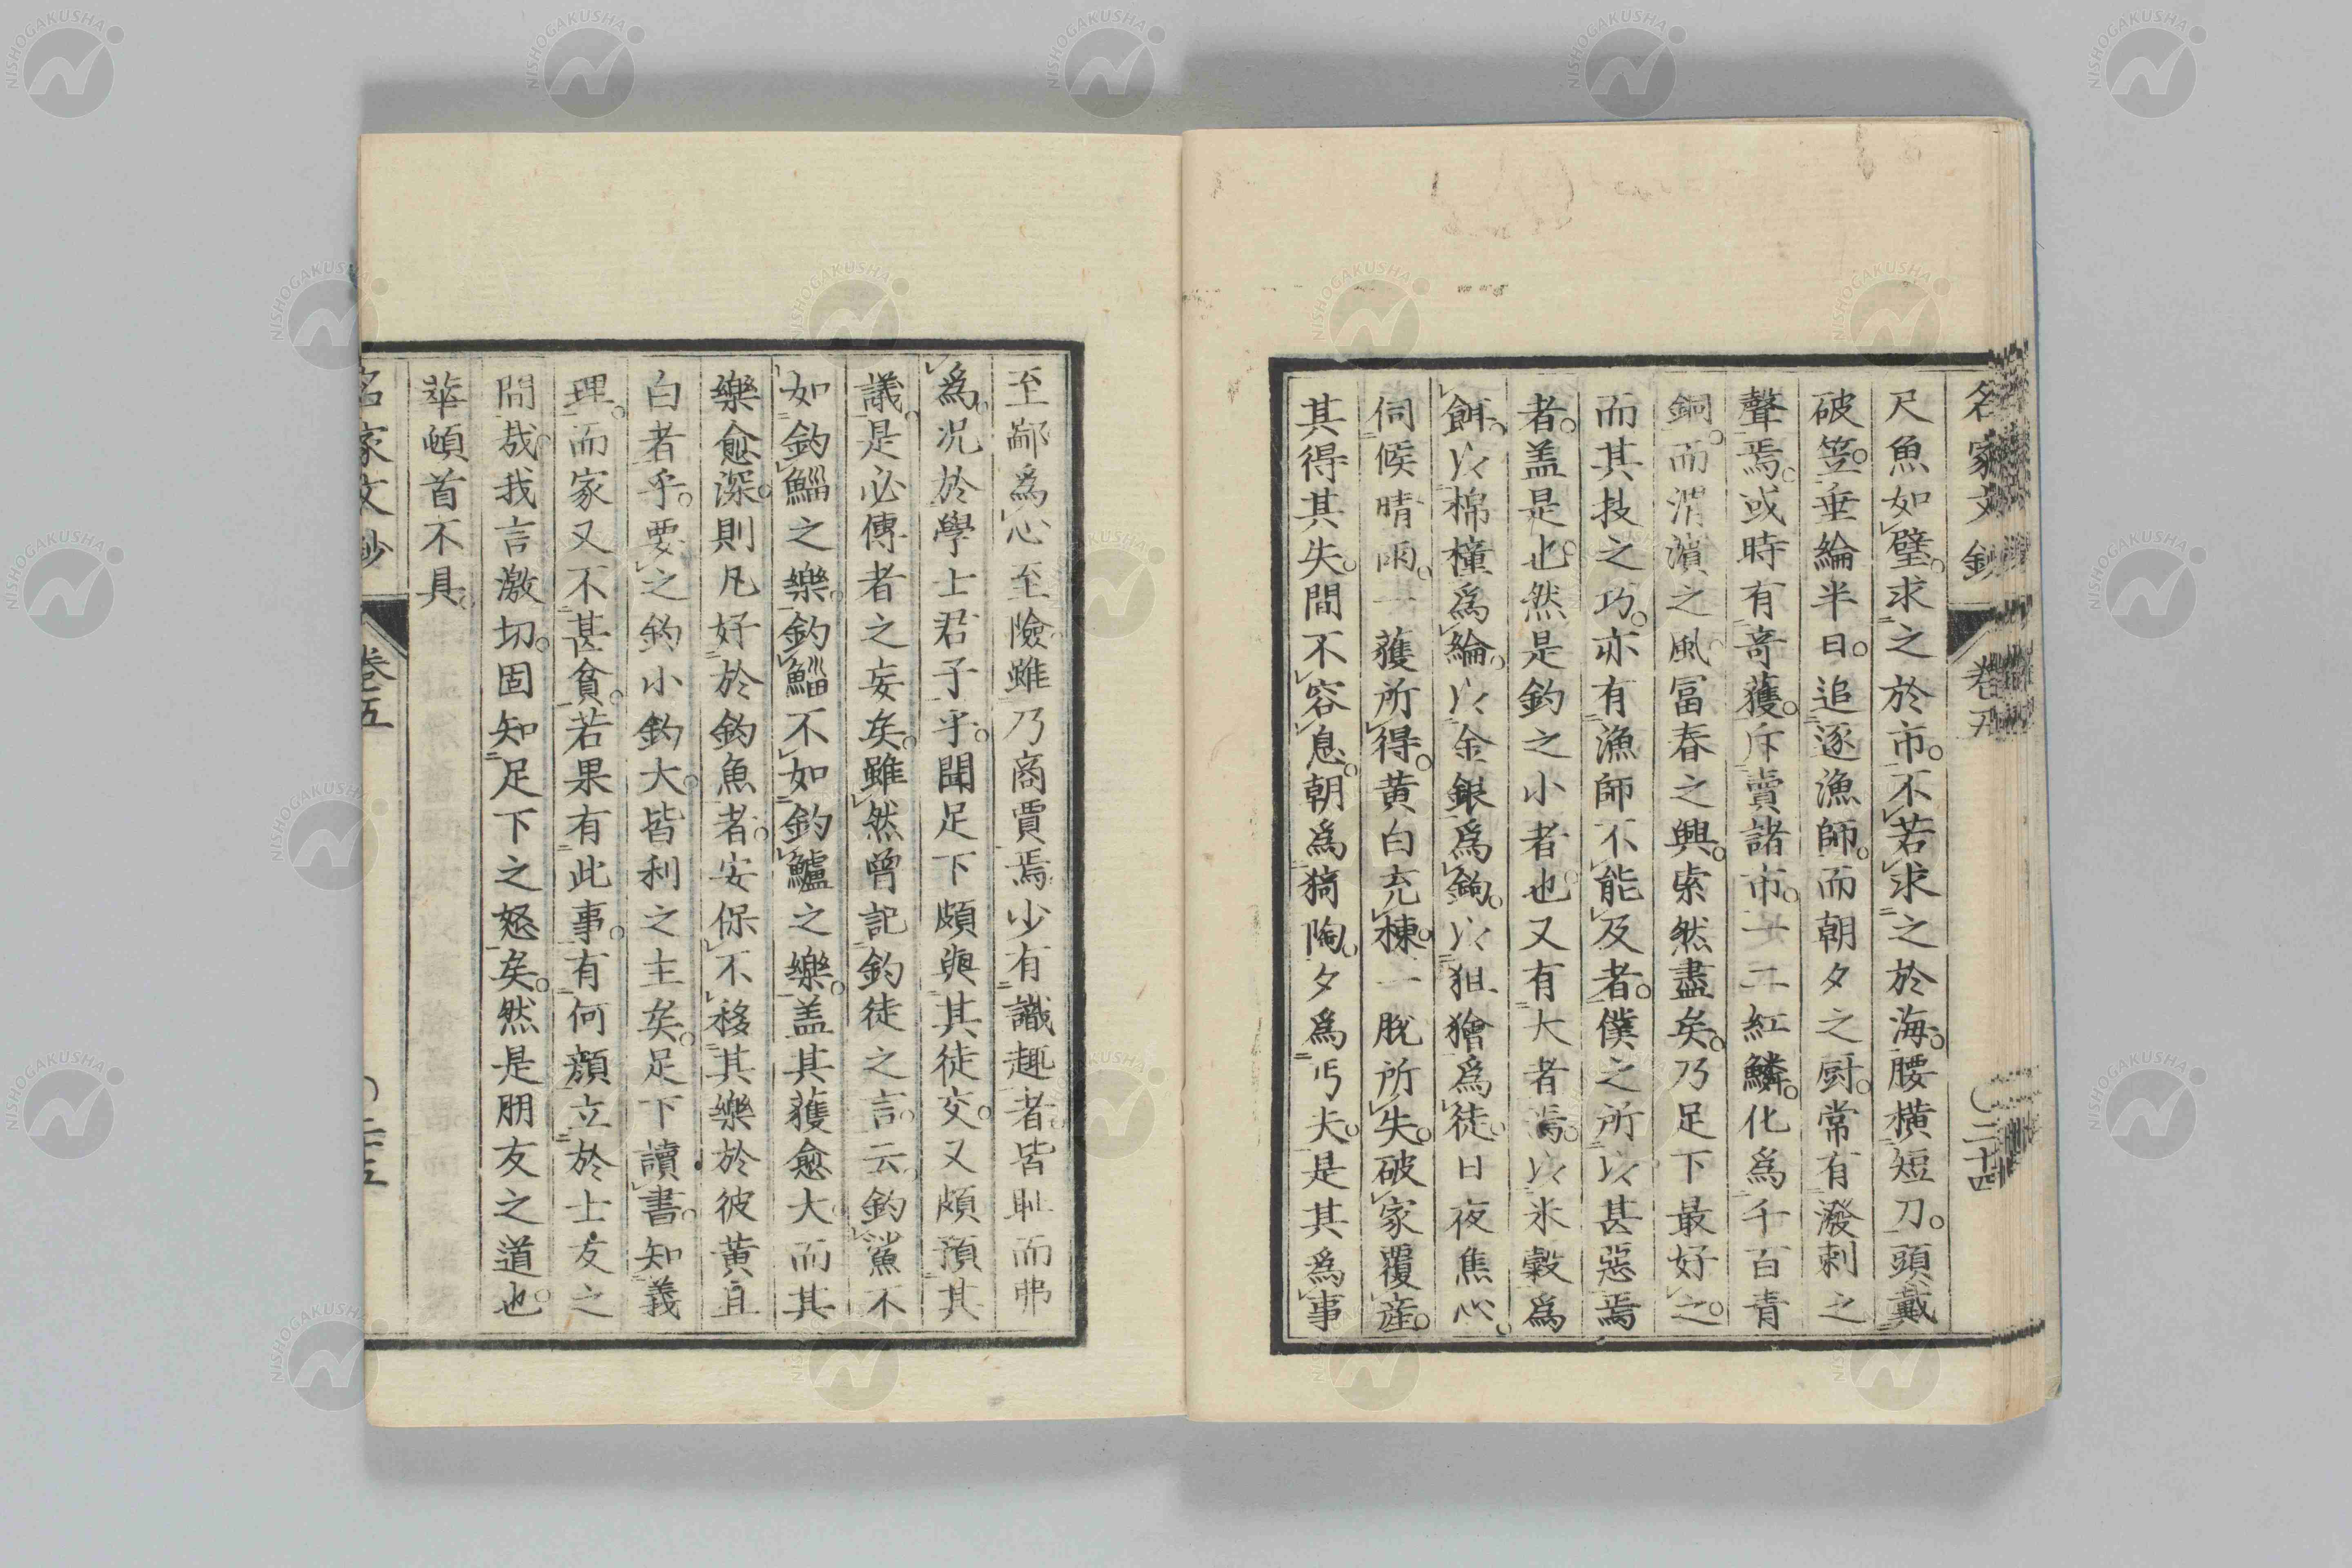 名家文鈔 卷五 二十四
尺魚如璧。求之於市。不若求之於海。腰橫短刀。頭戴
破笠。垂綸半日。追逐漁師。而朝夕之厨。常有潑剌之
聲焉。或時有奇獲。斥賣諸市。一二紅鱗。化爲千百青
銅。而渭濱之風冨春之興。索然盡矣。乃足下最好之。
而其技之巧。亦有漁師不能及者。僕之所以甚惡焉
者。盖是也。然是釣之小者也。又有大者焉。以米穀爲
餌。以棉橦爲綸。以金銀爲鉤。以狙獪爲徒。日夜焦心。
伺候晴雨。一獲所得。黃白充棟。一脫所失。破家覆產。
其得其失。間不容息。朝爲猗陶。夕爲丐夫。是其爲事
至鄙爲心至險雖乃商賈焉少有識趣者。皆耻而弗
爲。况於學士君子乎。聞足下頗與其徒交。又頗預其
議。是必傳者之妄矣。雖然曾記釣徒之言。云釣鯊不
如釣鯔之樂。釣鯔不如釣鱸之樂。盖其獲愈大而其
樂愈深。則凡好於釣魚者。安保不移其樂於彼黃且
白者乎。要之釣小釣大。皆利之主矣。足下讀書。知義
理。而家又不甚貧。若果有此事。有何顏立於士友之
間哉我言激切。固知足下之怒矣。然是朋友之道也。
華頓首不具。
名家文鈔 卷五 二十五
NISHOGAKUSHA